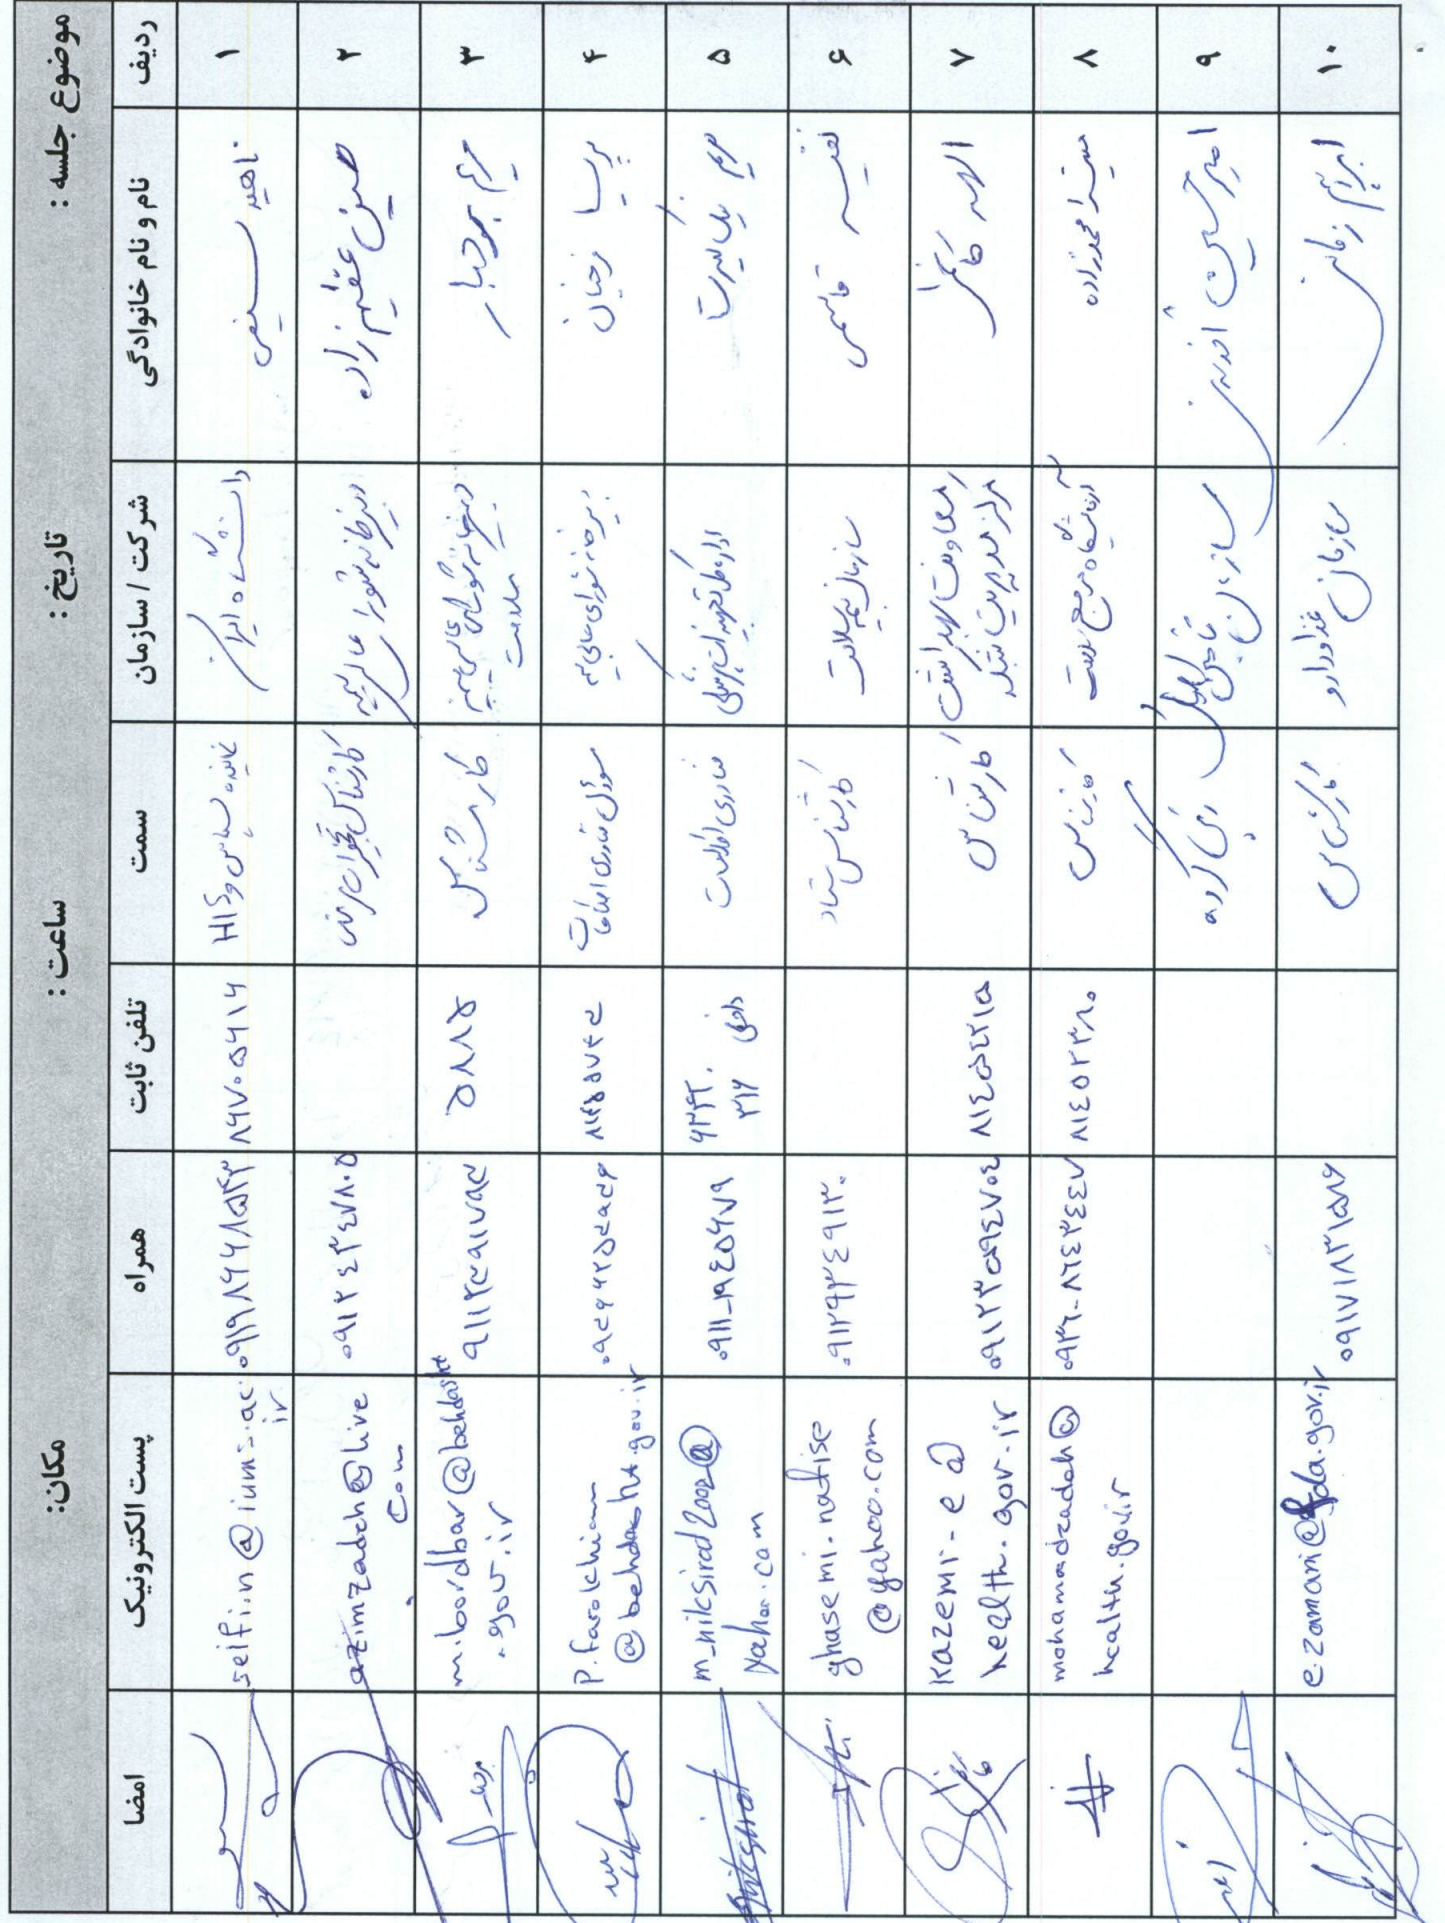 موضوع جلسه : تاریخ : ساعت : مکان:
ردیف نام و نام خانوادگی شرکت / سازمان سمت تلفن ثابت همراه پست الکترونیک امضا
۱ ناهید سیفی دانشگاه ایران HIS ۸۶۷۰۵۶۱۴ ۰۹۱۹۸۶۶۸۵۴۳ seifi.n@iums.ac.
ir
۲ عظیم زاده دبیرخانه شورای عالی بیمه ۰۹۱۲۴۳۴۷۸۰۵ azimzadeh@live
.com
۳ مریم بردبار دبیرخانه شورای عالی بیمه
سلامت کارشناس ۵۸۸۵ ۹۱۲۴۹۱۷۹۴ m.bordbar@behdasht
.gov.ir
۴ پریسا فرخیان دبیرخانه شورای عالی بیمه مسئول فناوری اطلاعات P.farokhian
@behdasht.gov.ir
۵ مریم نیک سیرت اداره کل تجهیزات پزشکی فناوری اطلاعات داخلی
۳۱۶ ۰۹۱۱-۱۹۴۵۶۷۹ m_niksirad2002@
yahoo.com
۶ نفیسه قاسمی سازمان بیمه سلامت کارشناس ستاد ۰۹۱۲۹۳۴۴۹۱۳۰ ghasemi.nafise
@yahoo.com
۷ الهه کاظمی معاونت بهداشت
مرکز مدیریت شبکه کارشناس ۸۱۴۵۴۲۱۵ ۰۹۱۲۳۵۹۴۷۰۴ kazemi-e@
health.gov.ir
۸ میترا محمدزاده آزمایشگاه مرجع سلامت کارشناس ۸۱۴۵۲۳۸۰ ۰۹۳۶-۸۲۴۳۴۴۷ mohamadzadeh@
health.gov.ir
۹ امیرحسین سازمان تامین اجتماعی
۱۰ ابراهیم زمانی سازمان غذا و دارو کارشناس ۰۹۱۷۱۸۳۱۵۸۶ e.zamani@fda.gov.ir